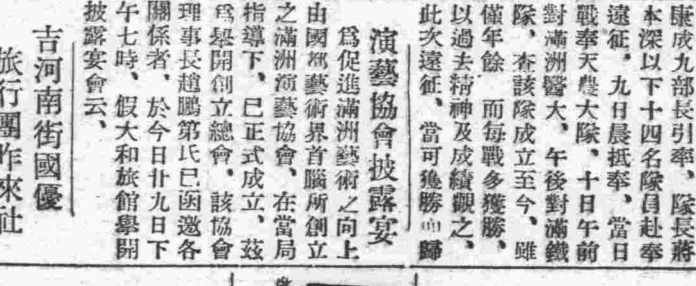 康成九部長引率、隊長蔣
本深以下十四名隊員赴奉
遠征、九日晨抵奉、當日
戰奉天農大隊、十日午前
對滿洲醫大、午後對滿鐵
隊、查該隊成立至今、雖
僅年餘 而每戰多獲勝、
以過去精神及成績觀之、
此次遠征、當可獲勝而歸
演藝協會披露宴
爲促進滿洲藝術之向上
由國都藝術界首腦所創立
之滿洲演藝協會、在當局
指導下、已正式成立、茲
爲舉開創立總會、該協會
理事長趙鵬第氏已函邀各
關係者、於今日廿九日下
午七時、假大和旅館舉開
披露宴會云、
吉河南街國優
旅行團昨來社